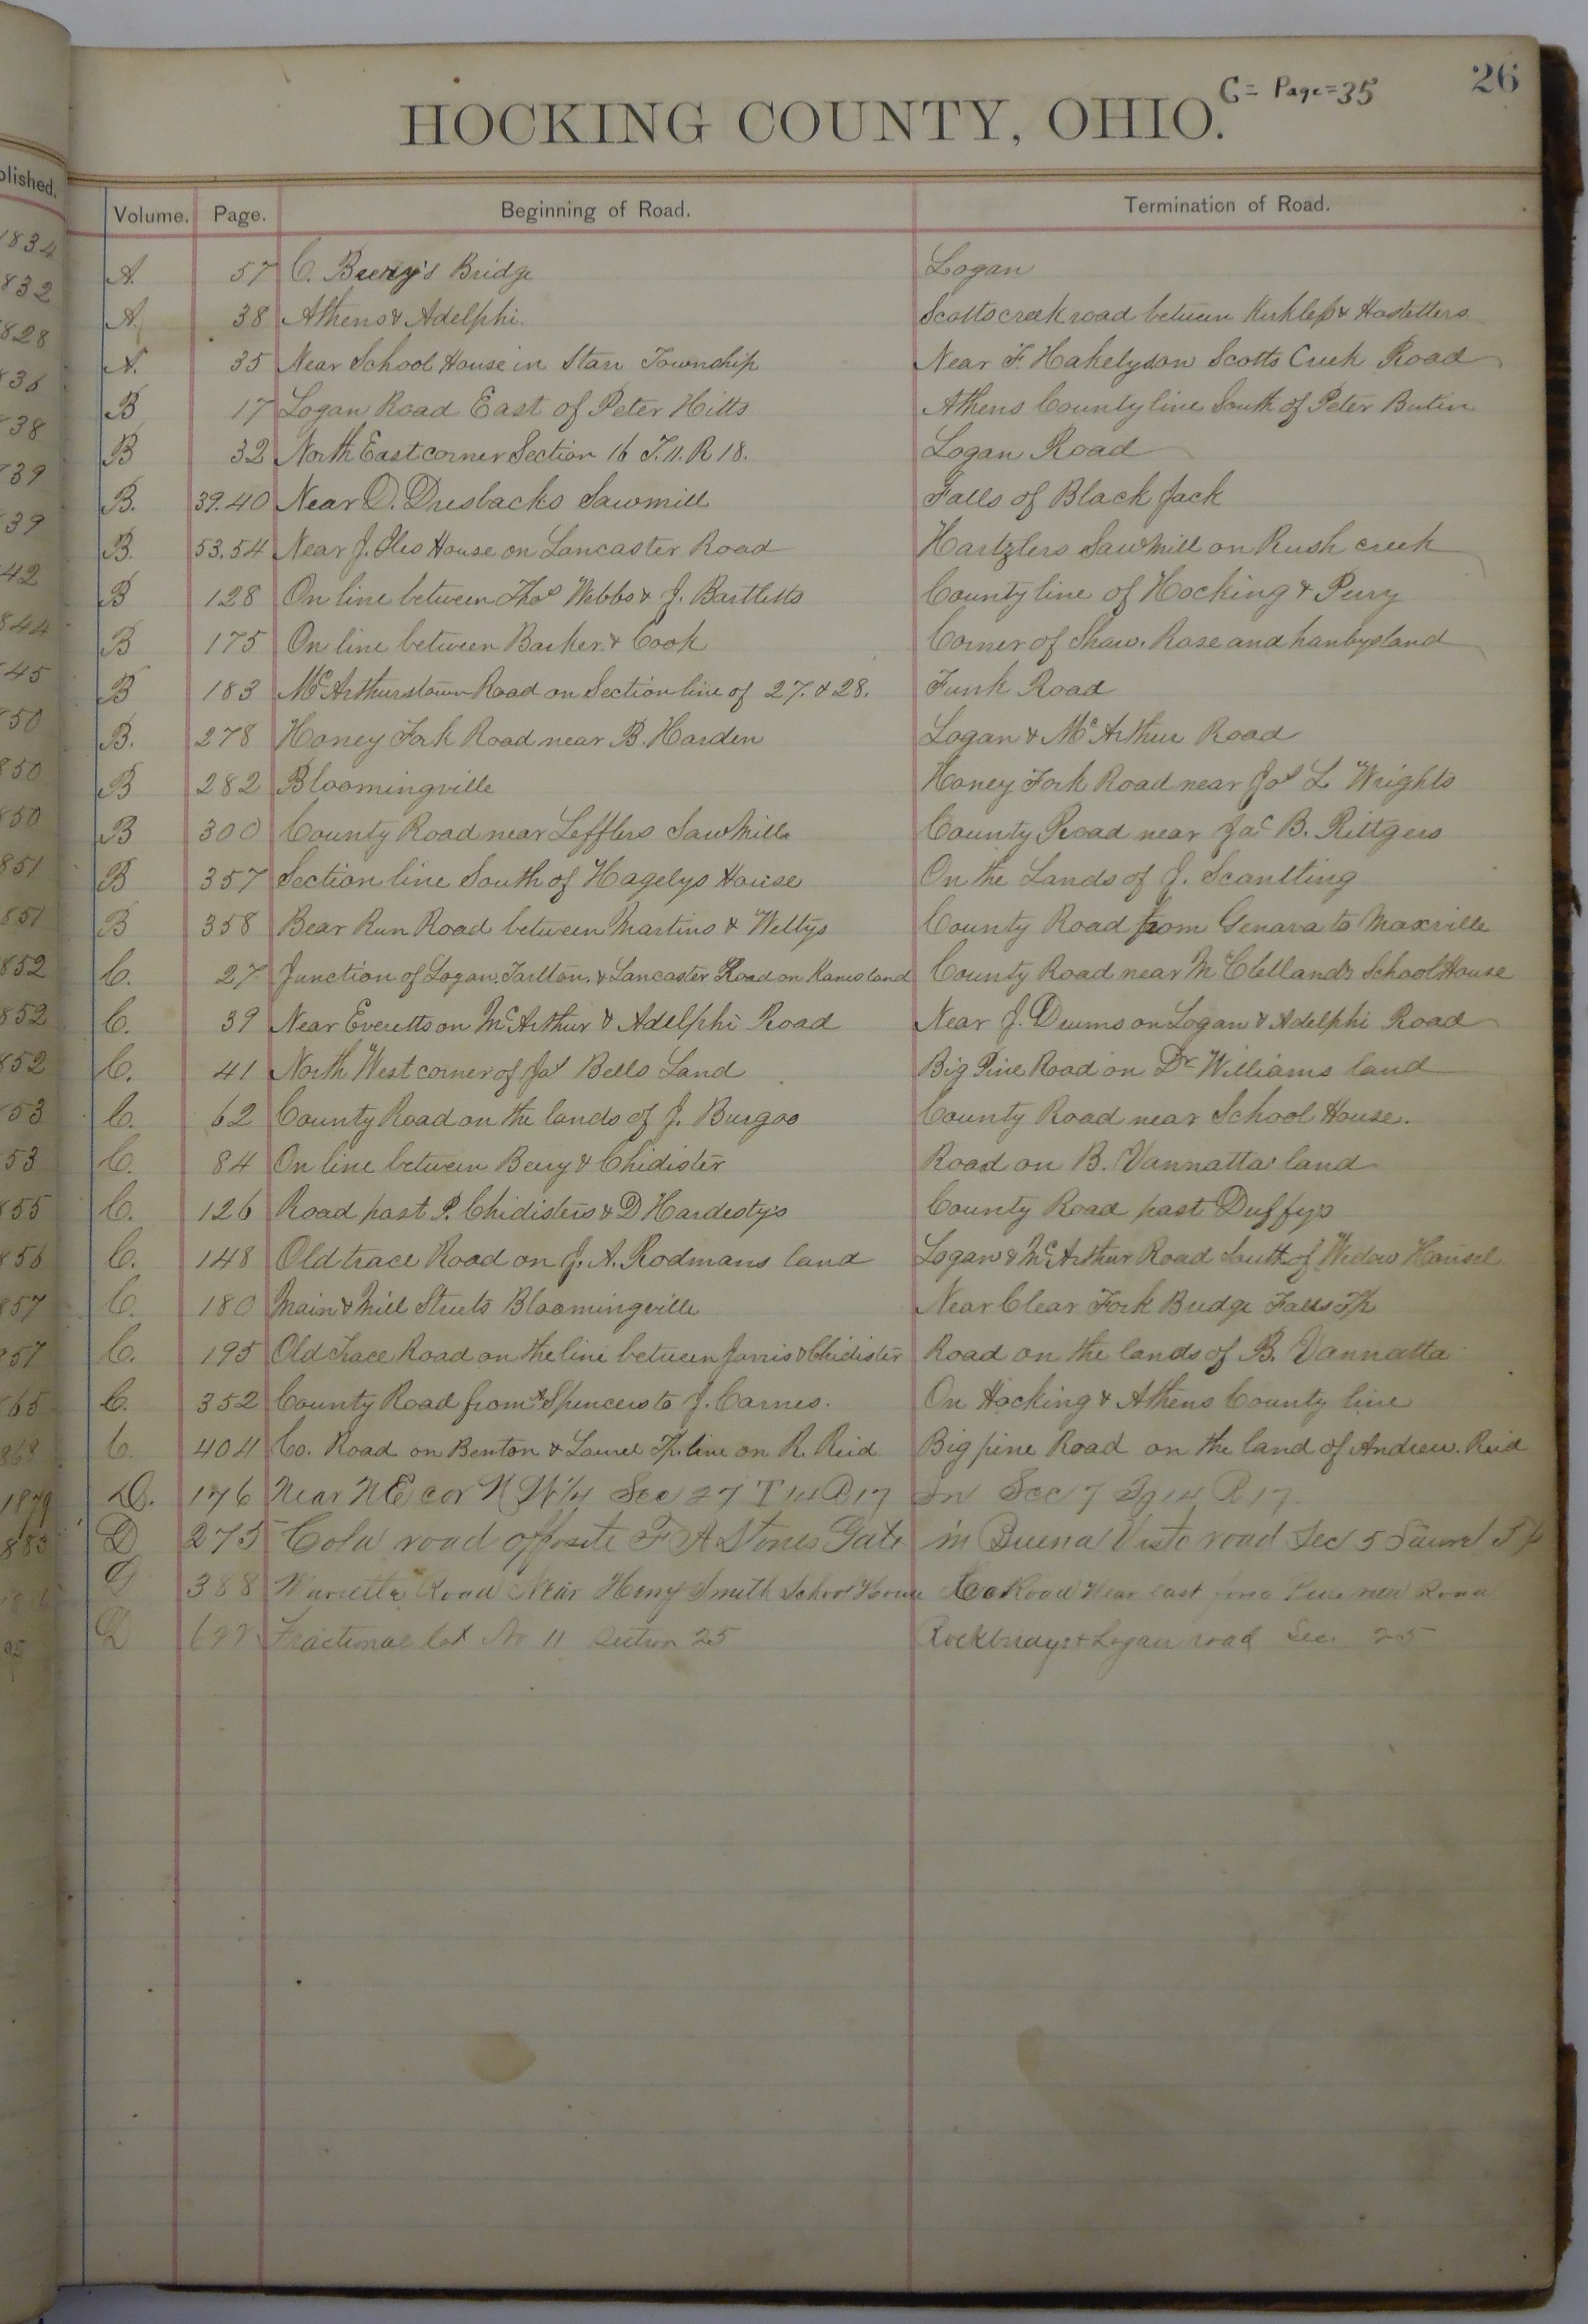 26
C = Page = 35
HOCKING COUNTY, OHIO.
Volume. Page. Beginning of Road. Termination of Road.
A. 57 C. Beery's Bridge Logan
A. 38 Athens & Adelphi. Scotts creek road between & Hostetters
A. 35 Near School House in Starr Township Near F. Hakelys on Scotts Creek Road
B 17 Logan Road East of Peter Hitts Athens County line South of Peter
B 32 North East corner Section 16 T. 11. R 18. Logan Road
B. 39.40 Near D. Dresbacks Sawmill Falls of Black Jack
B. 53.54 Near J. Iles House on Lancaster Road Hartzlers Sawmill on Rush creek
B 128 On line between Thos Webbs & J. Bartletts County line of Hocking & Perry
B 175 On line between Barker & Cook Corner of Shaw. Rose and hanbys land
B 183 McArthurstown Road on Section line of 27. & 28. Funk Road
B. 278 Honey Fork Road near B. Harden Logan & McArthur Road
B 282 Bloomingville Honey Fork Road near Jos L. Wrights
B 300 County Road near Lefflers Sawmill County Road near Jac B. Rittgers
B 357 Section line South of Hagelys House On the Lands of J. Scantling
B 358 Bear Run Road between Martins & Weltys County Road from Genava to Maxville
C. 27 Junction of Logan. Tarlton. & Lancaster Road on Kanes land County Road near McClellands School House
C. 39 Near Everetts on McArthur & Adelphi Road Near J. Drums on Logan & Adelphi Road
C. 41 North West corner of Jas Bells Land Big Pine Road on Dr Williams land
C. 62 County Road on the lands of J. Burgos County Road near School House.
C. 84 On line between Berry & Chidister Road on B. Vannatta's land
C. 126 Road past P. Chidisters & D Hardestys County Road past Duffys
C. 148 Old trace Road on J. A. Rodmans land Logan & McArthur Road South of Widow Hansel
C. 180 Main & Mill Streets Bloomingville Near Clear Fork Bridge Falls Tp
C. 195 Old Trace Road on the line between Jarvis & Chidister Road on the lands of B. Vannatta
C. 352 County Road from Spencers to J. Carnes. On Hocking & Athens County line
C. 404 Co. Road on Benton & Laurel Tp. line on R. Reid. Big pine Road on the land of Andrew. Reid
D. 176 Near N E cor N W 1/4 Sec 27 T 14 R 17 In Sec 7 Tp 14 R 17.
D 275 Cola road opposite F A Stones Gate in Buena Vista road Sec 5 Laurel Tp
388 Marietta Road Near Henry Smith School House Co Road Near east Road
D Fractional lot No 11 Section 25 Rockbridge & Logan road Sec. 25
olished.
1834
832
828
836
838
839
839
42
844
45
50
850
850
851
851
852
852
852
53
53
855
856
857
857
865
868
1879
883